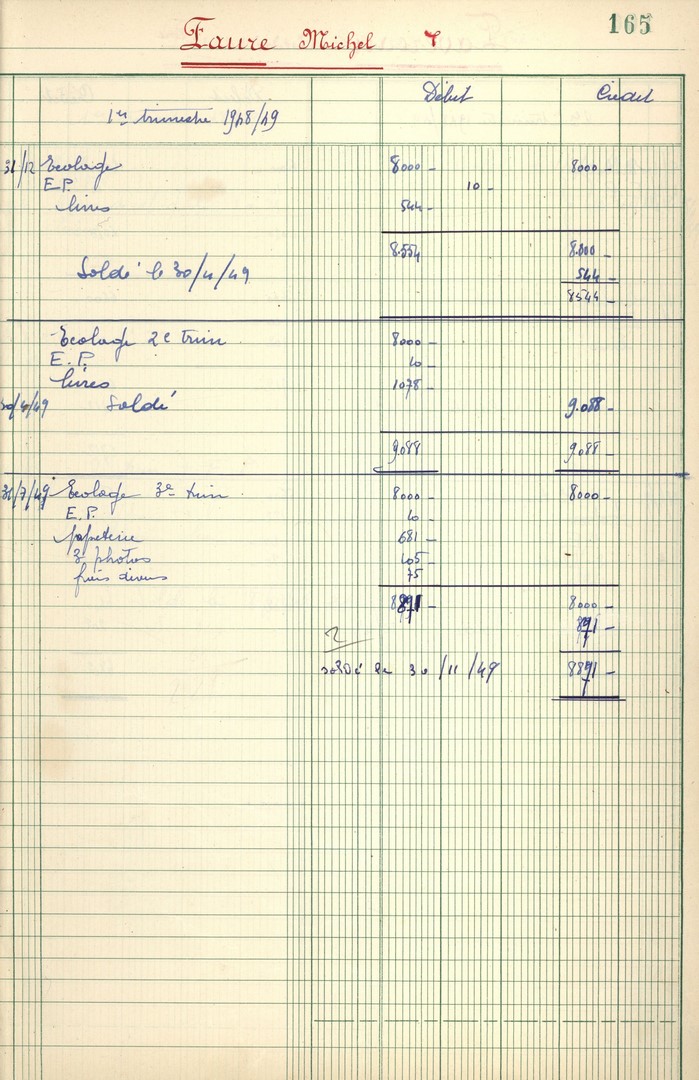 165
Faure Michel
Début Crédit
1er trimestre 1948/49
31/12 Ecolage 8000 - 8000 -
E.P. 10 -
livres 544 -
8.554 8.000 -
Soldé le 30/4/49 544 -
8544 -
Ecolage 2e trim 8000 -
E.P. 10 -
livres 1078 -
30/4/49 Soldé 9.088 -
9.088 - 9.088 -
31/7/49 Ecolage 3e trim 8000 - 8000 -
E.P. 10 -
papeterie 681 -
3 photos 105 -
frais divers 75
8871 - 8000 -
871 -
soldé le 30/11/49 8871 -